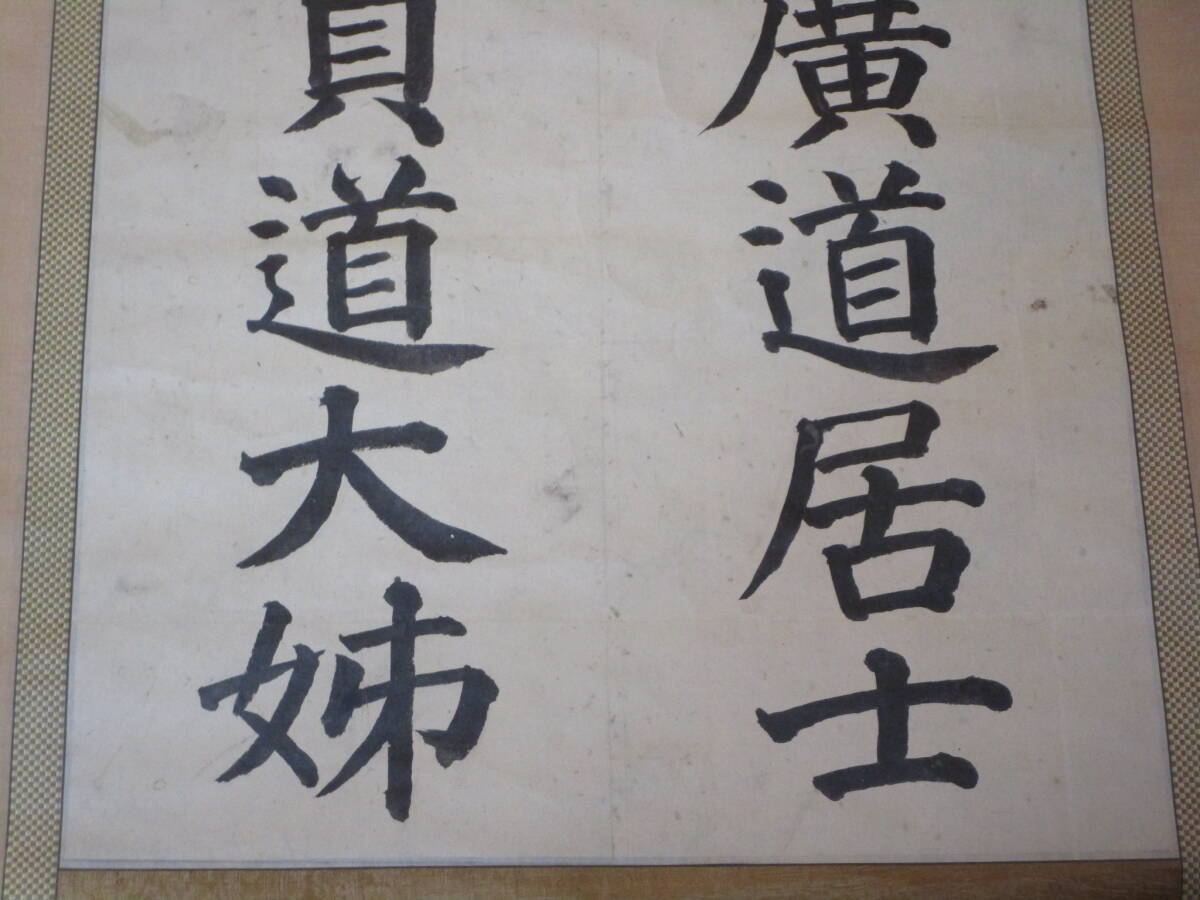 廣道居士
道大姉